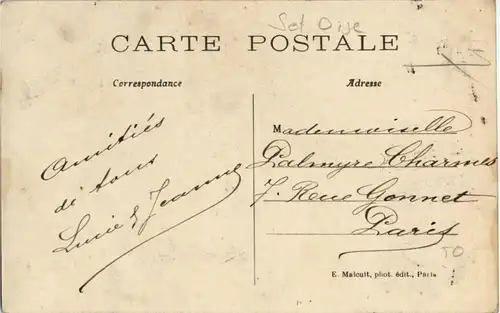 Set Oise
CARTE POSTALE
Correspondance
Adresse
Amitiés
de tous
Lucie & Jeanne
Mademoiselle
Palmyre Charmes
7. Rue Gonnet
Paris
TO
E. Malcuit, phot. édit., Paris